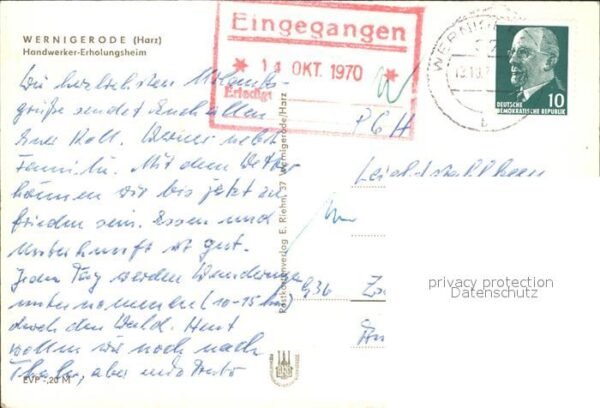 WERNIGERODE (Harz)
Handwerker-Erholungsheim
Die herzlichsten Urlaubs-
grüße sendet Euch allen
Euer Koll. Werner nebst
Familie. Mit dem Wetter
können wir bis jetzt zu
frieden sein. Essen und
Unterkunft ist gut.
Jeden Tag werden Wanderungen
unternommen (10-15 km)
durch den Wald. Heut
wollen wir noch nach
Thale, aber mit Auto
EVP -,20 M
Eingegangen
* 14. OKT. 1970 *
Erledigt
Postkartenverlag E. Riehn, 37 Wernigerode/Harz
WERNIGERODE
DEUTSCHE
DEMOKRATISCHE REPUBLIK
10
PGH
Leichtstahlbau
privacy protection
Datenschutz